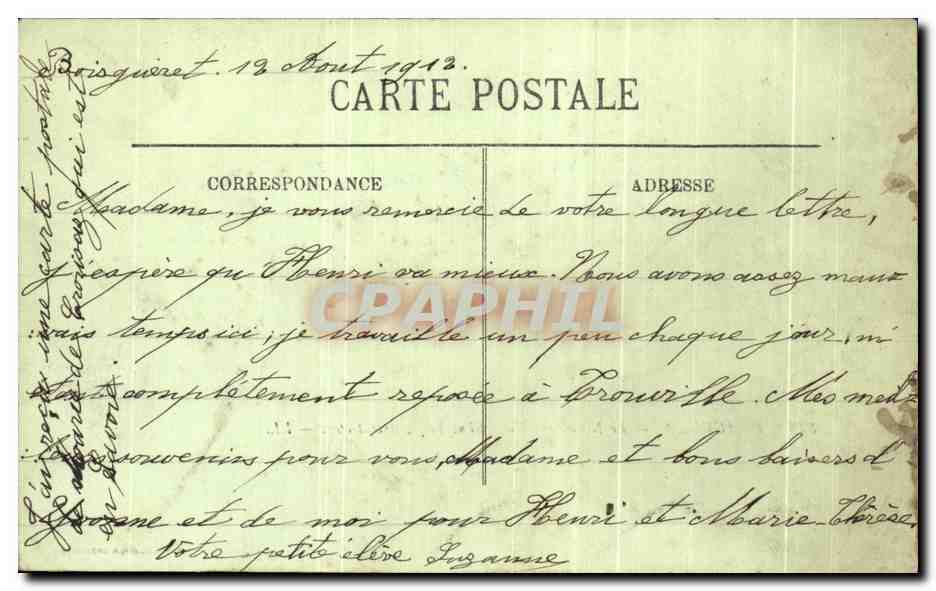 Boisguéret. 12 Aout 1912.
CARTE POSTALE
CORRESPONDANCE
ADRESSE
Madame, je vous remercie de votre longue lettre,
j'espère qu'Henri va mieux. Nous avons assez mau=
:vais temps ici, je travaille un peu chaque jour, m'
étant complétement reposée à Trouville. Mes meil=
:leurs souvenirs pour vous, Madame et bons baisers d'
Yvonne et de moi pour Henri et Marie-Thérèse.
Votre petite élève Suzanne
J'ai reçu une carte postale
de qui est
en Savoie.
CPAPHIL